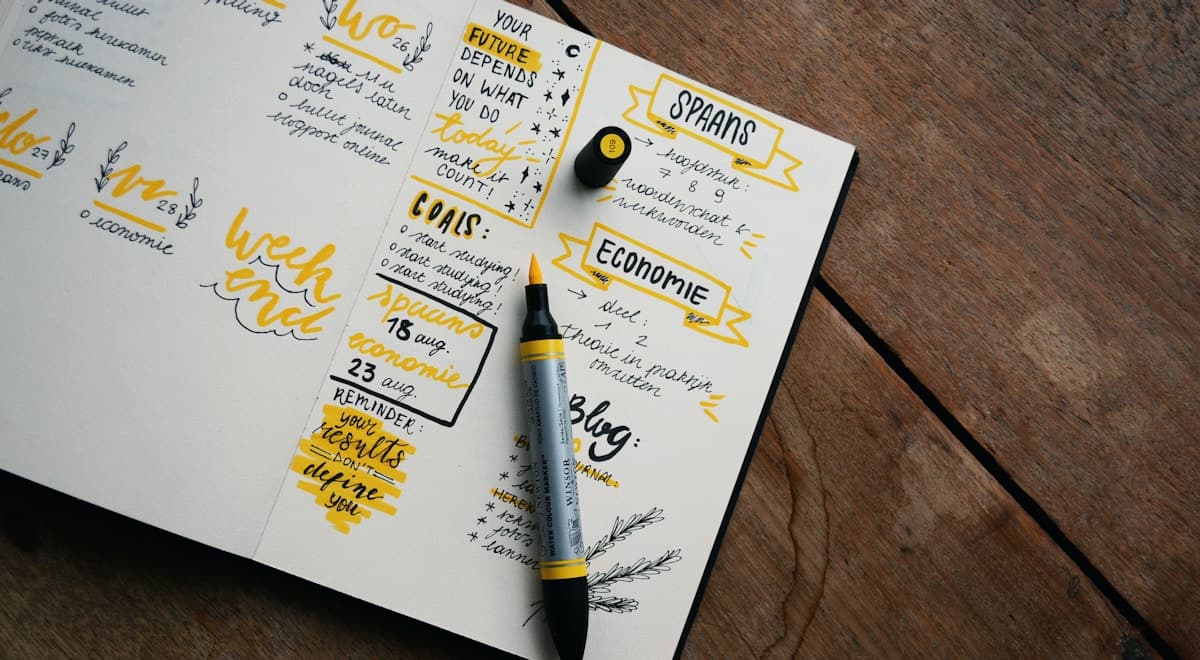 foto's herexamen
herexamen
Wo 26
11u
nagels laten
doen
o bullet journal
blogpost online
do 27
vr 28
o economie
week
end
YOUR
FUTURE
DEPENDS
ON WHAT
YOU DO
today
make it
COUNT!
GOALS:
o start studying!
o start studying!
o start studying!
spaans
18 aug.
economie
23 aug.
REMINDER:
your
results
DON'T
define
you
SPAANS
→ hoofdstuk:
7 8 9
woordenschat &
werkwoorden
ECONOMIE
→ deel:
1 2
theorie in praktijk
omzetten
Blog:
URNAL:
HEREX
*
* foto's
*
601
WATER COLOUR MARKER™
WINSOR
NEWTON